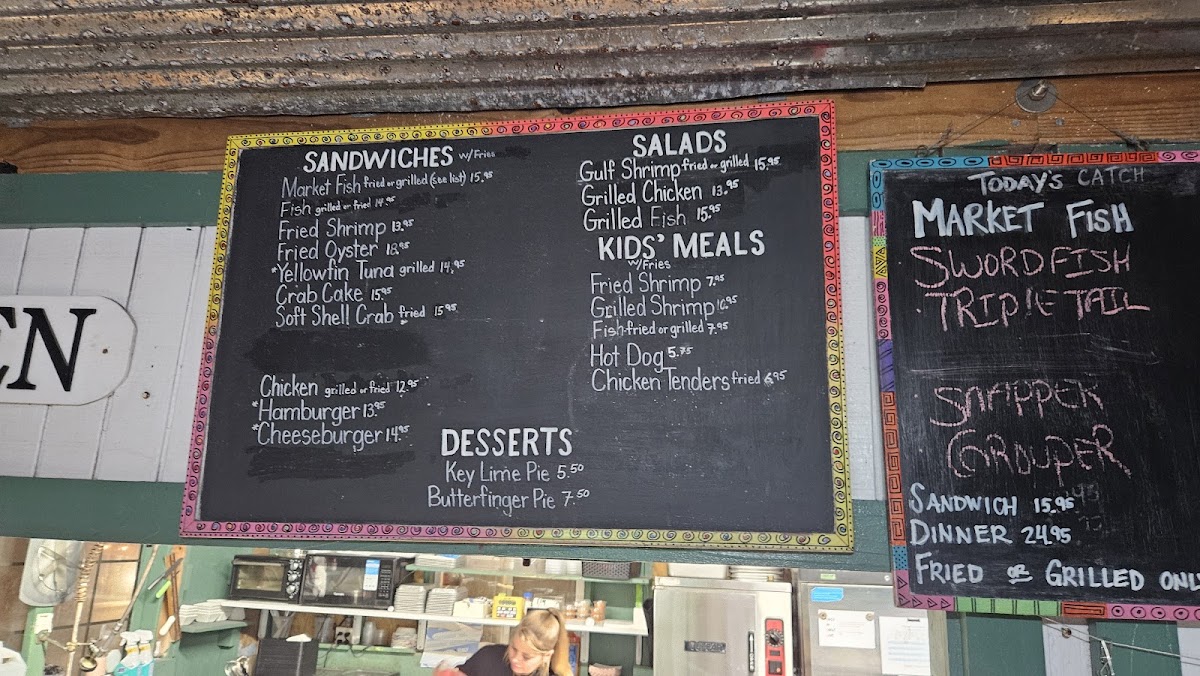 SANDWICHES w/Fries
Market Fish fried or grilled (see list) 15.95
Fish grilled or fried 14.95
Fried Shrimp 13.95
Fried Oyster
*Yellowfin Tuna grilled 14.95
Crab Cake 15.95
Soft Shell Crab fried 15.95
Chicken grilled or fried 12.95
*Hamburger 13.95
*Cheeseburger 14.95
SALADS
Gulf Shrimp fried or grilled 15.95
Grilled Chicken 13.95
Grilled Fish 15.95
KIDS' MEALS
w/Fries
Fried Shrimp 7.95
Grilled Shrimp 10.95
Fish-fried or grilled 7.95
Hot Dog 5.75
Chicken Tenders fried 6.95
DESSERTS
Key Lime Pie 5.50
Butterfinger Pie 7.50
TODAY'S CATCH
MARKET FISH
SWORDFISH
TRIPLETAIL
SNAPPER
GROUPER
SANDWICH 15.95
DINNER 24.95
FRIED OR GRILLED ONL
EN